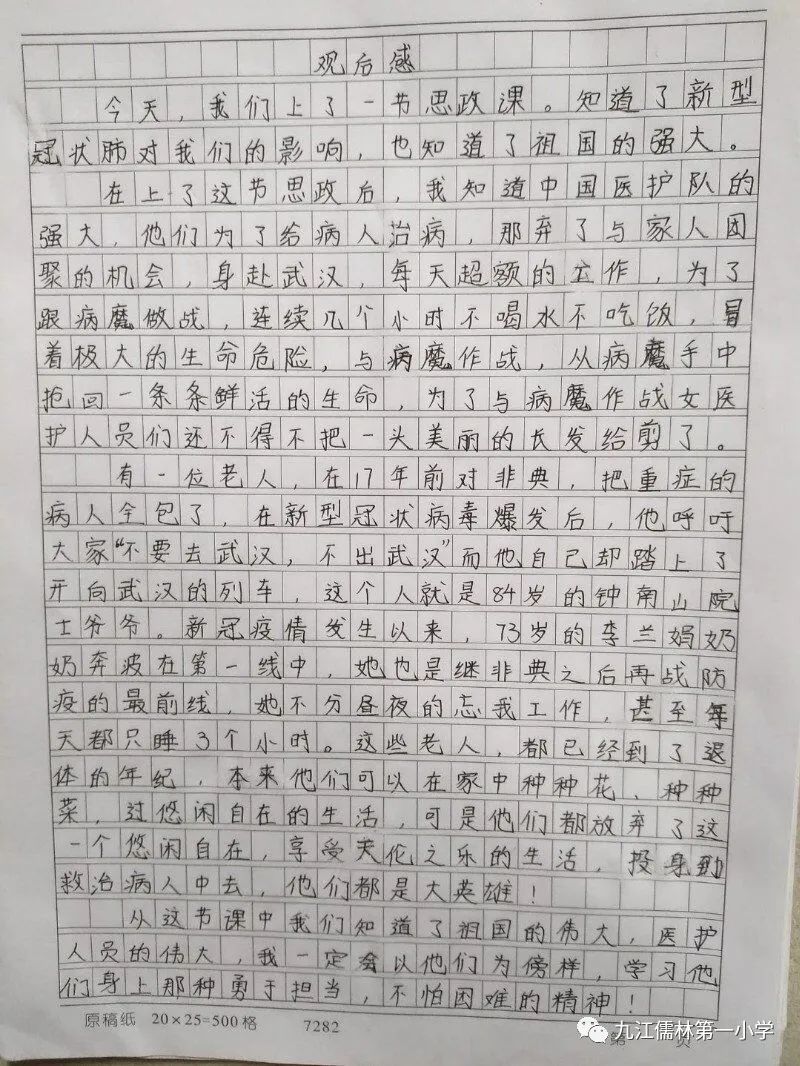 观后感
今天，我们上了一节思政课。知道了新型
冠状肺对我们的影响，也知道了祖国的强大。
在上了这节思政后，我知道中国医护队的
强大，他们为了给病人治病，那弃了与家人团
聚的机会，身赴武汉，每天超额的工作，为了
跟病魔做战，连续几个小时不喝水不吃饭，冒
着极大的生命危险，与病魔作战，从病魔手中
抢回一条条鲜活的生命，为了与病魔作战女医
护人员们还不得不把一头美丽的长发给剪了。
有一位老人，在17年前对非典，把重症的
病人全包了，在新型冠状病毒爆发后，他呼吁
大家“不要去武汉，不出武汉”而他自己却踏上了
开向武汉的列车，这个人就是84岁的钟南山院
士爷爷。新冠疫情发生以来，73岁的李兰娟奶
奶奔波在第一线中，她也是继非典之后再战防
疫的最前线，她不分昼夜的忘我工作，甚至每
天都只睡3个小时。这些老人，都已经到了退
体的年纪，本来他们可以在家中种种花，种种
菜，过悠闲自在的生活，可是他们都放弃了这
一个悠闲自在，享受天伦之乐的生活，投身到
救治病人中去，他们都是大英雄！
从这节课中我们知道了祖国的伟大，医护
人员的伟大，我一定会以他们为傍样，学习他
们身上那种勇于担当，不怕困难的精神！
原稿纸 20×25=500格 7282 第 页
九江儒林第一小学